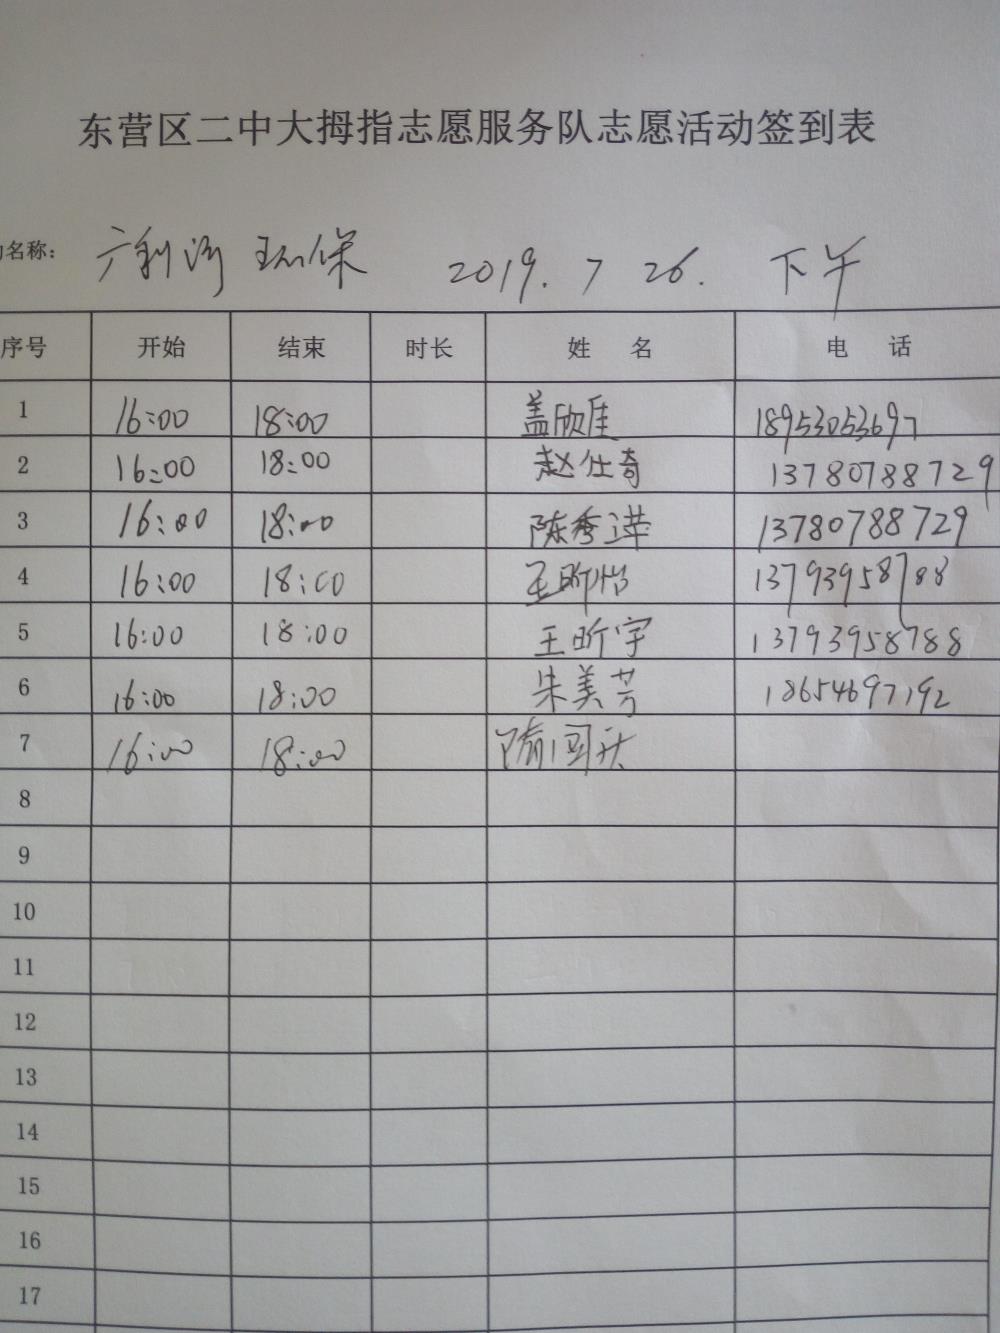 东营区二中大拇指志愿服务队志愿活动签到表
名称: 广利河 环保 2019. 7 26. 下午
序号 开始 结束 时长 姓 名 电 话
1 16:00 18:00 盖欣佳 18953053697
2 16:00 18:00 赵仕奇 13780788729
3 16:00 18:00 陈秀萍 13780788729
4 16:00 18:00 王昕怡 13793958788
5 16:00 18:00 王昕宇 13793958788
6 16:00 18:00 朱美芳 18654697192
7 16:00 18:00
8
9
10
11
12
13
14
15
16
17